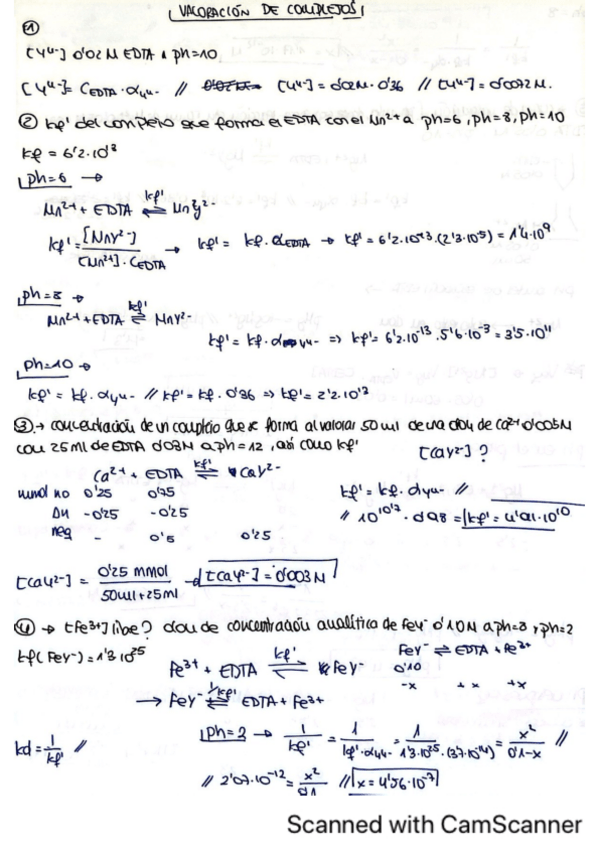 VALORACIÓN DE COMPLEJOS
①
[Y⁴⁻] 0'02 M EDTA a ph=10
[Y⁴⁻] = C_EDTA · αy⁴⁻ // [Y⁴⁻] = 0'02M · 0'36 // [Y⁴⁻] = 0'0072 M.
② Kf' del complejo que forma el EDTA con el Mn²⁺ a ph=6, ph=8, ph=10
Kf = 6'2·10¹³
ph=6 →
Mn²⁺ + EDTA ⇌ MnY²⁻ Kf'
Kf' = [MnY²⁻] / [Mn²⁺]·C_EDTA → Kf' = Kf·α_EDTA → Kf' = 6'2·10¹³·(2'3·10⁻⁵) = 1'4·10⁹
ph=8 →
Mn²⁺ + EDTA ⇌ MnY²⁻ Kf'
Kf' = Kf·αy⁴⁻ => Kf' = 6'2·10⁻¹³·5'6·10⁻³ = 3'5·10¹¹
ph=10 →
Kf' = Kf·αy⁴⁻ // Kf' = Kf·0'36 => Kf' = 2'2·10¹³
③ → concentración de un complejo que se forma al valorar 50ml de una dón de Ca²⁺ 0'005M
con 25ml de EDTA 0'03M a ph=12, así como Kf'
[CaY²⁻]?
Ca²⁺ + EDTA ⇌ CaY²⁻ Kf'
mmol no 0'25 0'75
Δn -0'25 -0'25
neq - 0'5 0'25
Kf' = Kf·αy⁴⁻ //
// 10¹⁰'⁷·0'98 = Kf' = 4'91·10¹⁰
[CaY²⁻] = 0'25 mmol / 50ml+25ml → [CaY²⁻] = 0'003M
④ → [Fe³⁺] libre? dón de concentración analítica de FeY⁻ 0'10M a ph=8 y ph=2
Kf(FeY⁻) = 1'3·10²⁵
Fe³⁺ + EDTA ⇌ FeY⁻ Kf'
→ FeY⁻ ⇌ EDTA + Fe³⁺ 1/Kf'
FeY⁻ ⇌ EDTA + Fe³⁺
0'10
-x +x +x
Kd = 1/Kf' //
ph=2 → 1/Kf' = 1/Kf·αy⁴⁻ = 1/1'3·10²⁵·(3'7·10⁻¹⁴) = x²/0'1-x //
// 2'07·10⁻¹² = x²/0'1 // x = 4'56·10⁻⁷
Scanned with CamScanner